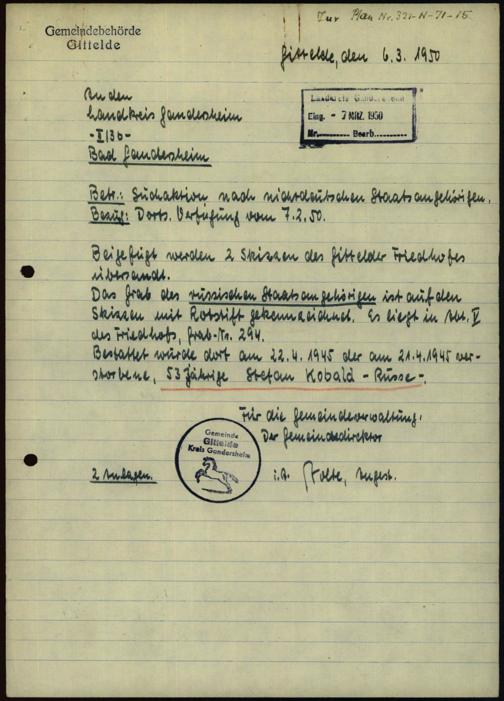 Zur Plan Nr. 321-N-71-15
Gemeindebehörde
Gittelde
Gittelde, den 6.3. 1950
An den
Landkreis Gandersheim
-I/3b-
Bad Gandersheim
Landkreis Gandersheim
Eing. - 7. MRZ. 1950
Nr. Bearb.
Betr.: Suchaktion nach nichtdeutschen Staatsangehörigen.
Bezug: Dorts. Verfügung vom 7.2.50.
Beigefügt werden 2 Skizzen des Gittelder Friedhofes
übersandt.
Das Grab des russischen Staatsangehörigen ist auf den
Skizzen mit Rotstift gekennzeichnet. Es liegt in Abt. V
des Friedhofs, Grab-Nr. 294.
Bestattet wurde dort am 22.4.1945 der am 21.4.1945 ver-
storbene, 53 jährige Stefan Kobald - Russe -.
Für die Gemeindeverwaltung.
Der Gemeindedirektor
Gemeinde
Gittelde
Kreis Gandersheim
2 Anlagen.
i.A. Nolte, Angest.